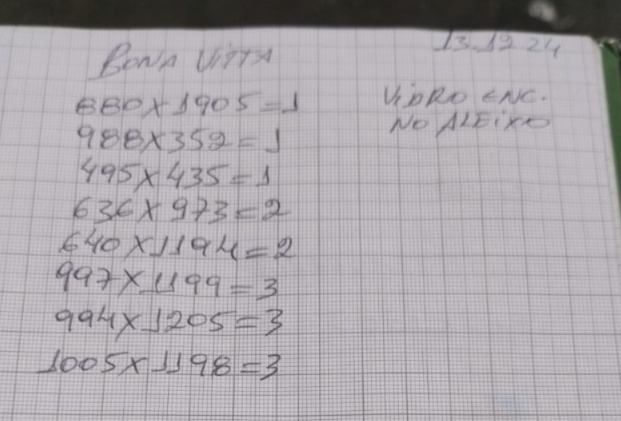 13.12.24
BONA VITTA
880X1905=1
988X352=1
495X435=1
636X973=2
640X1194=2
997X1199=3
994X1205=3
1005X1198=3
VIDRO ENC.
NO ALEIXO